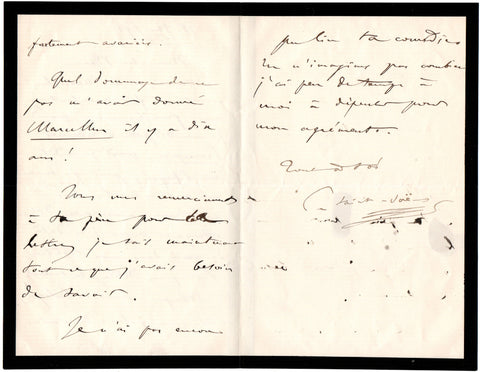 fortement avariés.
Quel dommage de ne
pas m'avoir donné
Marcellus il y a dix
ans !
Tous mes remerciments
à ton père pour les
lettres, je sais maintenant
tout ce que j'avais besoin
de savoir.
Je n'ai pas encore
pu lire ta comédie
tu n'imagines pas combien
j'ai peu de temps à
moi à dépenser pour
mon agrément.
Tout à toi
C. Saint-Saëns